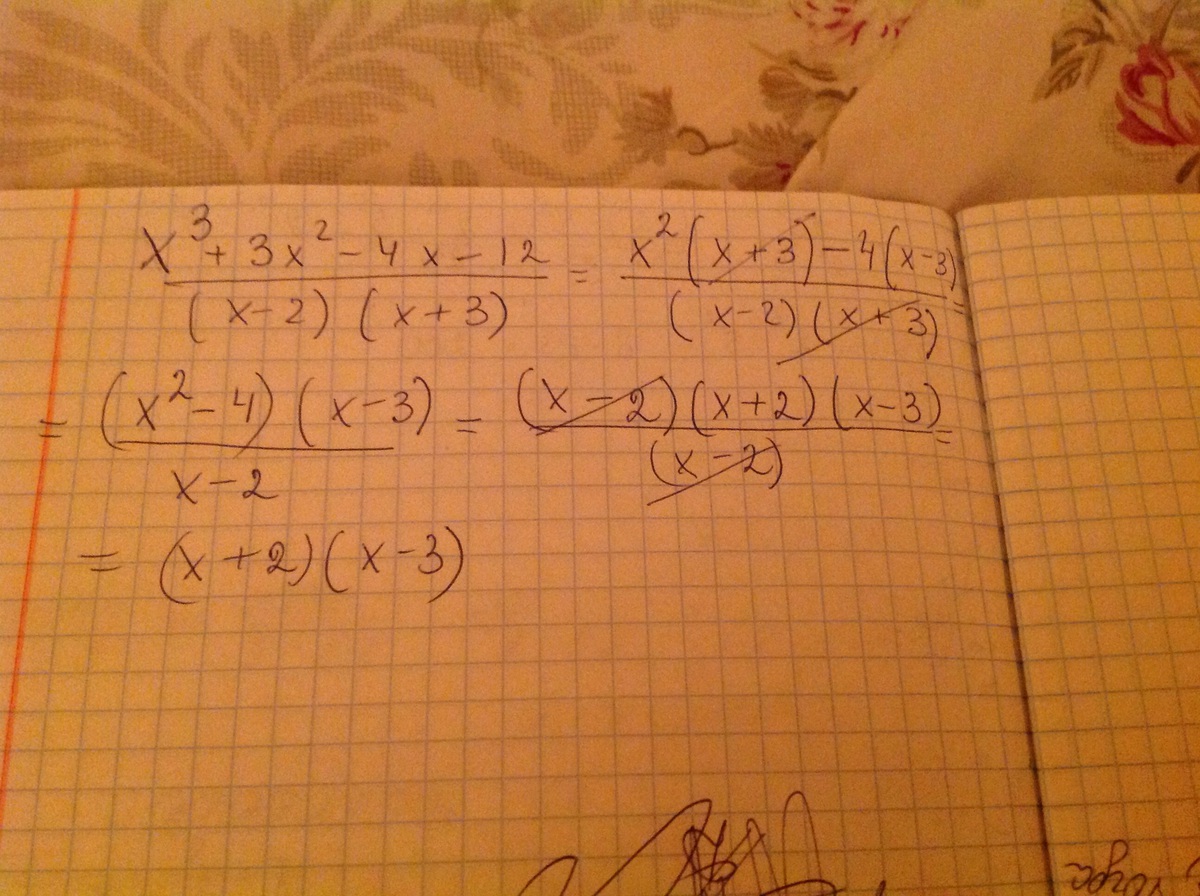 x³ + 3x² - 4x - 12 / (x-2) (x+3) = x² (x+3) - 4 (x-3) / (x-2) (x+3) =
= (x² - 4) (x-3) / x-2 = (x-2) (x+2) (x-3) / (x-2) =
= (x+2) (x-3)